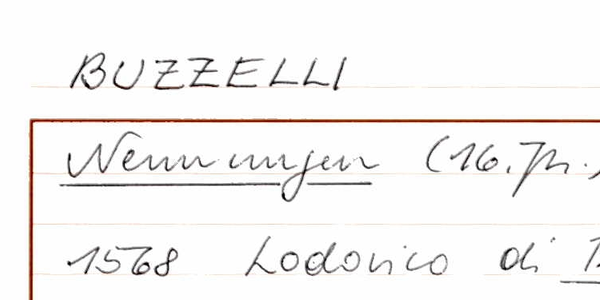 BUZZELLI
Nennungen (16. Jh.)
1568 Lodovico di